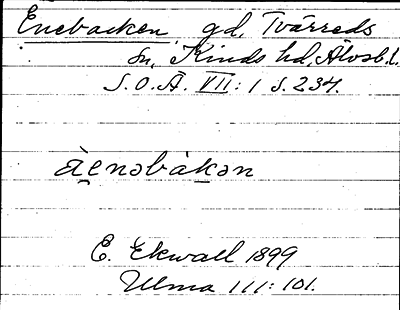 Enebacken gd, Tvärreds
sn, Kinds hd, Älvsb. l.
S.O.Ä. VII: 1 S. 234.
àenəbàkən
E. Ekwall 1899
Ulma 111: 101.